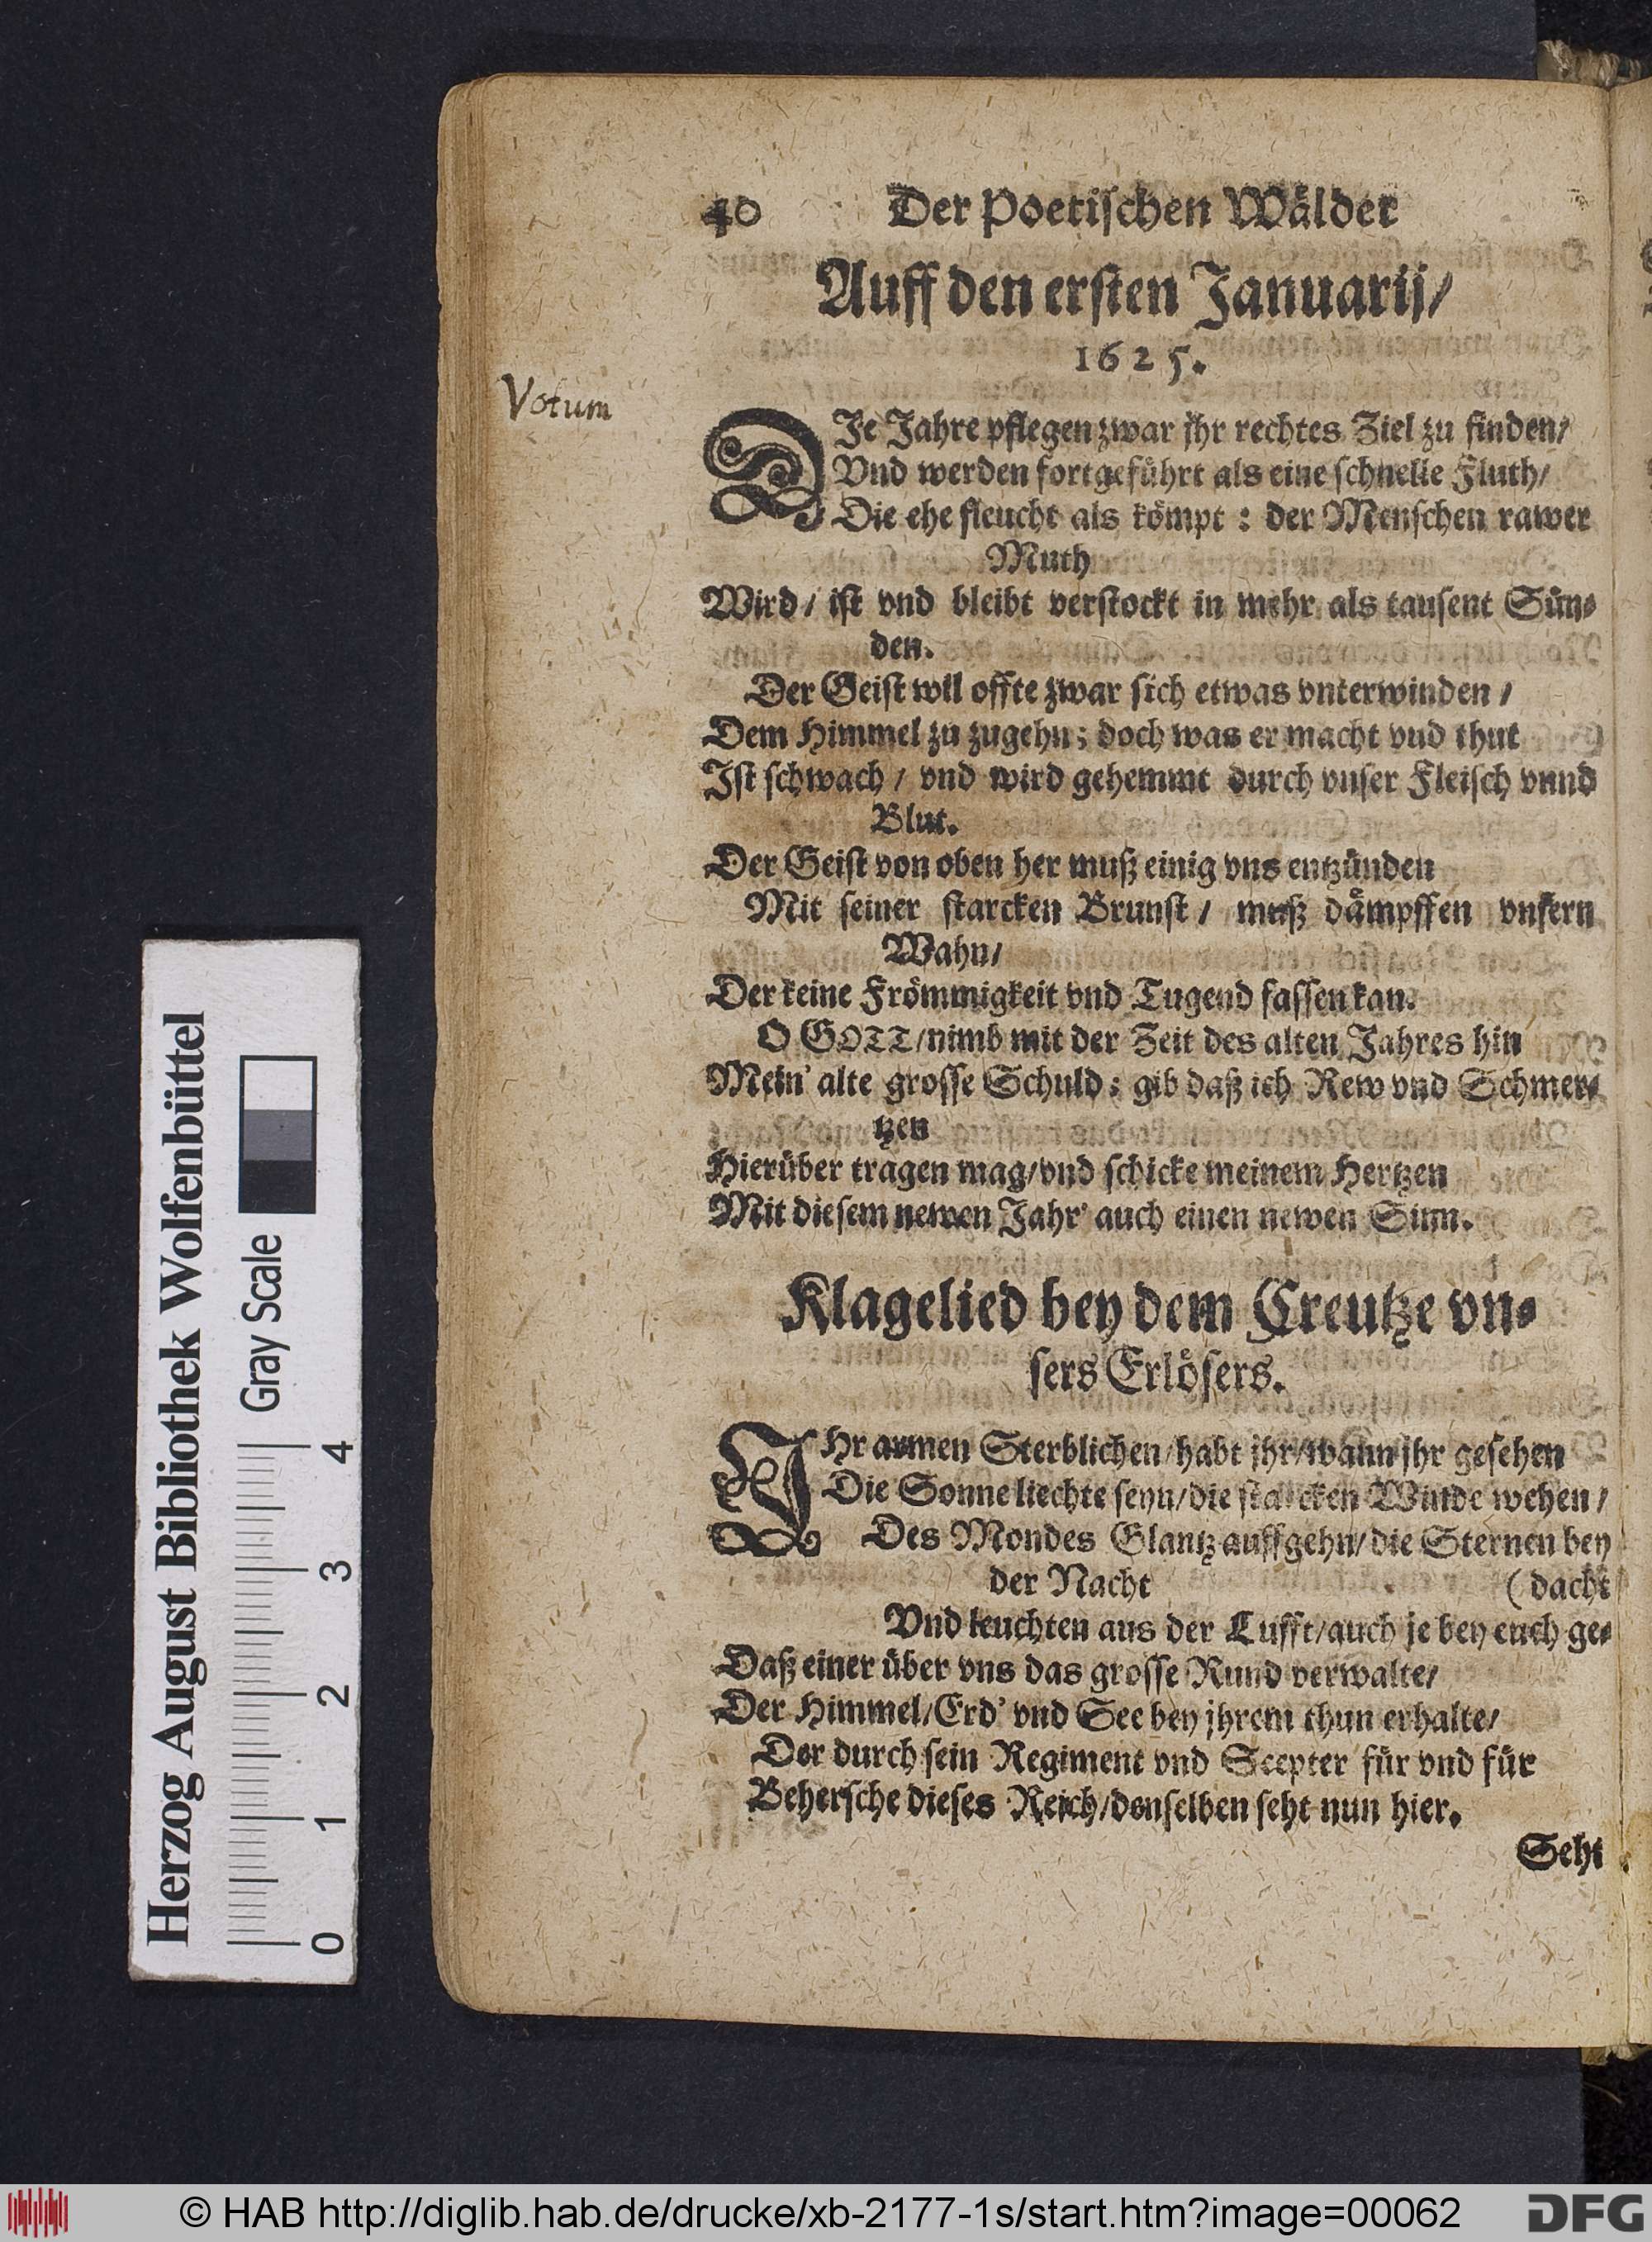 40 Der Poetischen Wälder
Auff den ersten Januarij/
1625.
Votum
DIe Jahre pflegen zwar jhr rechtes Ziel zu finden/
Vnd werden fortgeführt als eine schnelle Fluth/
Die ehe fleucht als kömpt : der Menschen rawer
Muth
Wird/ ist vnd bleibt verstockt in mehr als tausent Sün-
den.
Der Geist wil offte zwar sich etwas vnterwinden /
Dem Himmel zu zugehn; doch was er macht vnd thut
Ist schwach / vnd wird gehemmt durch vnser Fleisch vnnd
Blut.
Der Geist von oben her muß einig vns entzünden
Mit seiner starcken Brunst / muß dämpffen vnsern
Wahn/
Der keine Frömmigkeit vnd Tugend fassen kan.
O GOTT/nimb mit der Zeit des alten Jahres hin
Mein' alte grosse Schuld: gib daß ich Rew vnd Schmer-
tzen
Hierüber tragen mag/vnd schicke meinem Hertzen
Mit diesem newen Jahr' auch einen newen Sinn.
Klagelied bey dem Creutze vn-
sers Erlösers.
IHr armen Sterblichen/habt jhr/wann jhr gesehen
Die Sonne liechte seyn/die starcken Winde wehen /
Des Mondes Glantz auffgehn/die Sternen bey
der Nacht (dacht
Vnd leuchten aus der Lufft/auch je bey euch ge-
Daß einer über vns das grosse Rund verwalte/
Der Himmel/Erd' vnd See bey jhrem thun erhalte/
Der durch sein Regiment vnd Scepter für vnd für
Behersche dieses Reich/denselben seht nun hier.
Seht
Herzog August Bibliothek Wolfenbüttel
Gray Scale
0 1 2 3 4
© HAB http://diglib.hab.de/drucke/xb-2177-1s/start.htm?image=00062
DFG